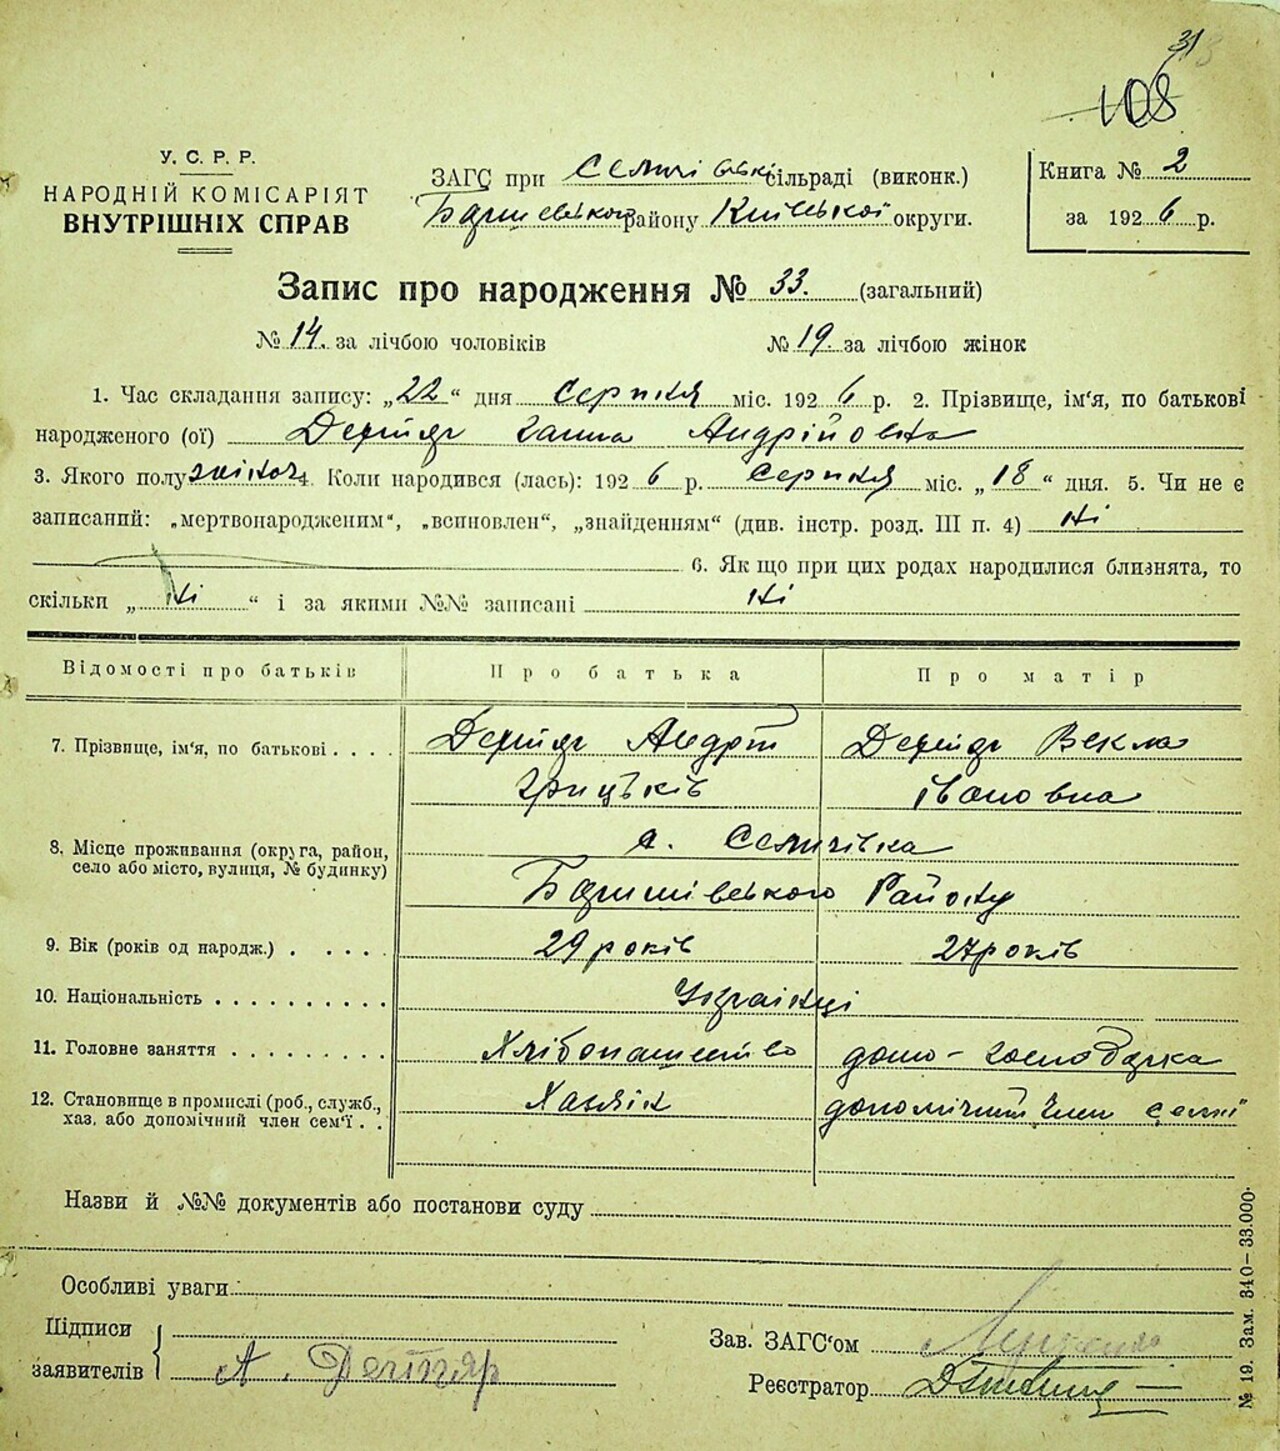 31
108
У. С. Р. Р.
НАРОДНІЙ КОМІСАРІЯТ
ВНУТРІШНІХ СПРАВ
ЗАГС при Семигівській сільраді (виконк.)
району Київської округи.
Книга № 2
за 1926 р.
Запис про народження № 33. (загальний)
№ 14. за лічбою чоловіків № 19. за лічбою жінок
1. Час складання запису: „22“ дня Серпня міс. 1926 р. 2. Прізвище, ім‘я, по батькові
народженого (ої) Дехтяр Ганна Андрійовна
3. Якого полу жіноч. Коли народився (лась): 1926 р. Серпня міс. „18“ дня. 5. Чи не є
записаний: „мертвонародженим“, „вспновлен“, „знайденням“ (див. інстр. розд. III п. 4) Ні
6. Як що при цих родах народилися близнята, то
скільки „Ні“ і за якими №№ записані Ні
Відомості про батьків Про батька Про матір
7. Прізвище, ім‘я, по батькові . . . . Дехтяр Андрій Дехтяр Векла
Грицьків Івановна
8. Місце проживання (округа, район, с.
село або місто, вулиця, № будинку) Району
9. Вік (років од народж.) . . . . . 29 років 27 років
10. Національність . . . . . . . . . . Українці
11. Головне заняття . . . . . . . . . Хлібопашество домо-господарка
12. Становище в промислі (роб., служб., Хазяїн допомічний член семї
хаз. або допомічний член сем‘ї . .
Назви й №№ документів або постанови суду
Особливі уваги
Підписи
заявителів А. Дехтяр
Зав. ЗАГС‘ом
Реєстратор
№ 19. Зам. 340—33.000.